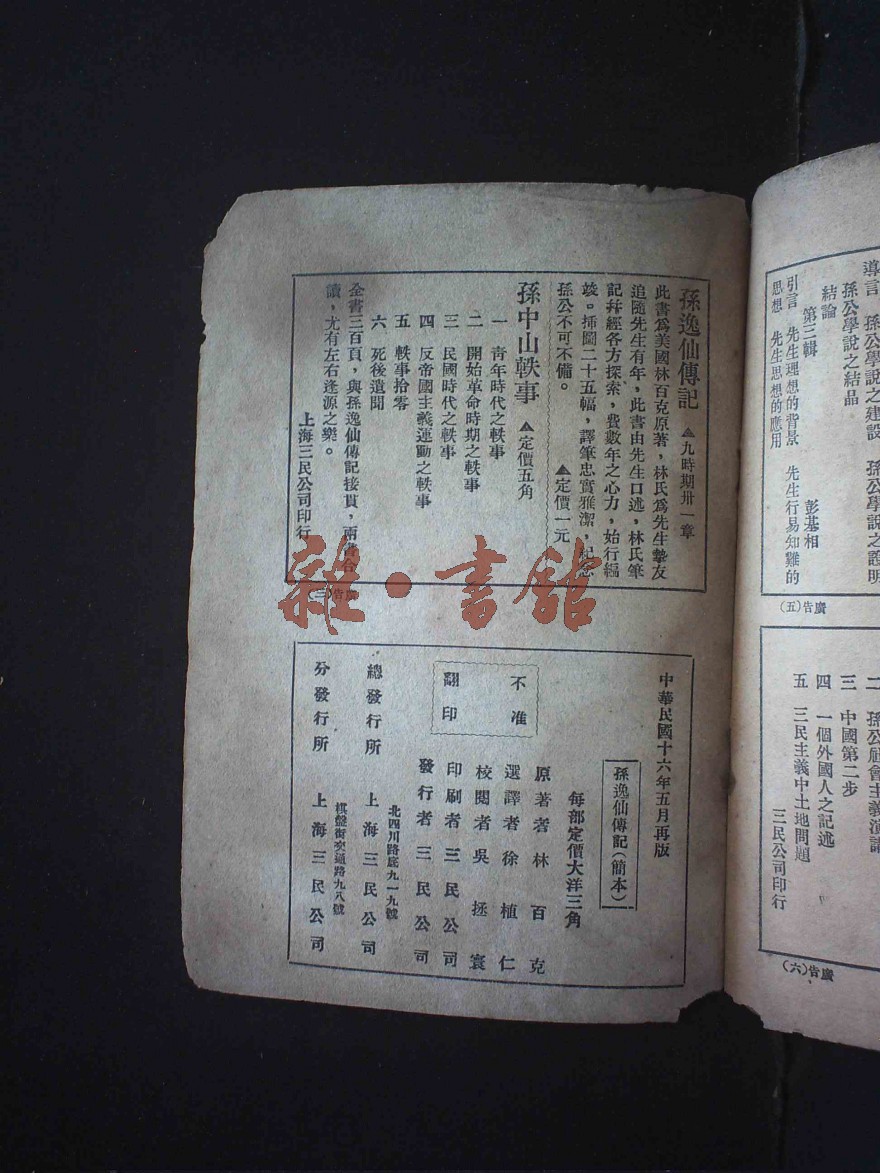 導言 孫公學說之建設 孫公學說之證明
孫公學說之結晶
結論
第三輯 彭基相
引言 先生理想的背景 先生行易知難的
思想 先生思想的應用
廣告(五)
二 孫公社會主義演講
三 中國第二步
四 一個外國人之記述
五 三民主義中土地問題
三民公司印行
廣告(六)
孫逸仙傳記 ▲九時期卅一章
此書爲美國林百克原著,林氏爲先生摯友
追隨先生有年,此書由先生口述,林氏筆
記幷經各方探索,費數年之心力,始行編
竣。揷圖二十五幅,譯筆忠實雅潔,紀念
孫公不可不備。 ▲定價一元
孫中山軼事 ▲定價五角
一 靑年時代之軼事
二 開始革命時期之軼事
三 民國時代之軼事
四 反帝國主義運動之軼事
五 軼事拾零
六 死後遺聞
全書三百頁,與孫逸仙傳記接貫,兩書合
讀,尤有左右逢源之樂。
上海三民公司印行
廣告(三)
雜·書館
中華民國十六年五月再版
孫逸仙傳記(簡本)
每部定價大洋三角
不准
翻印
原著者 林百克
選譯者 徐植仁
校閱者 吳拯寰
印刷者 三民公司
發行者 三民公司
北四川路底九一九號
總發行所 上海三民公司
棋盤街交通路九八號
分發行所 上海三民公司